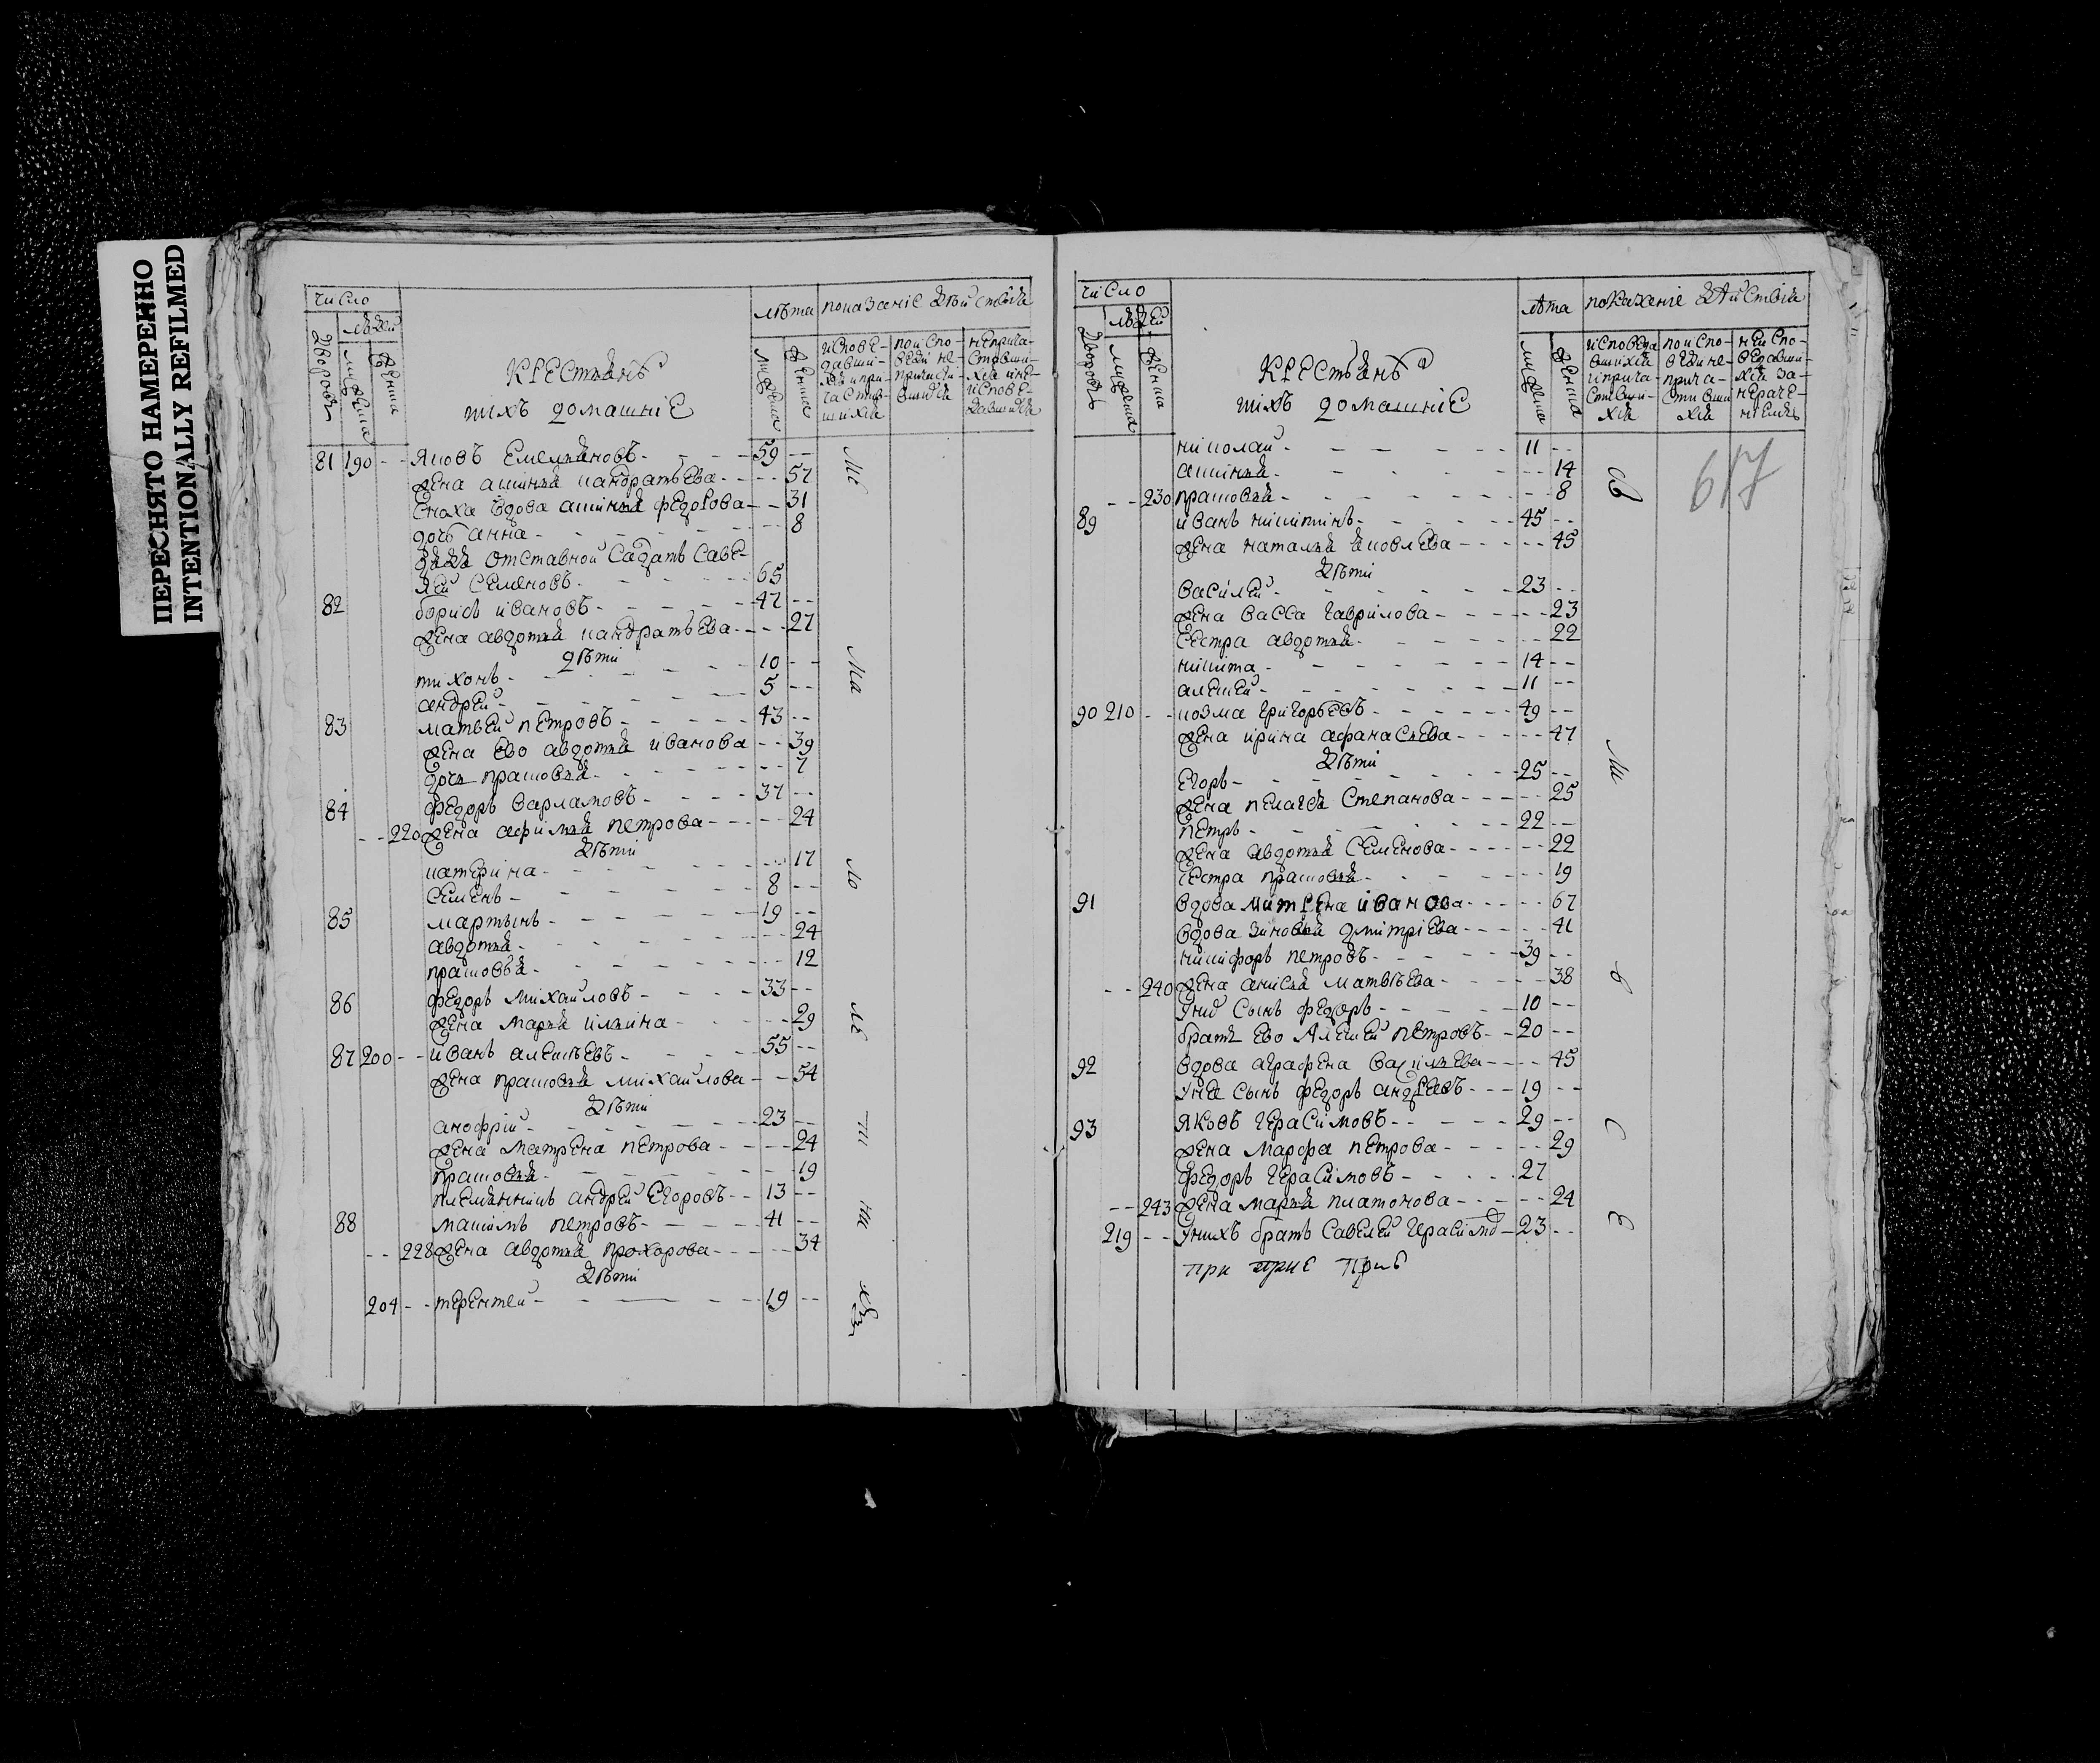 ПЕРЕСНЯТО НАМЕРЕННО
INTENTIONALLY REFILMED
число
людей
дворовъ
мужеска
женска
крестьянъ
тихъ домашніе
лѣта показаніе дѣйствія
мужеска
женска
исповѣ-
давши-
хся и при-
частив-
шихся
по испо-
веди не-
причасти-
вшихся
неприча-
ставши-
хся и не-
испове-
давшихся
81 190 - - Яковъ Емельяновъ - 59 - -
жена аксинья кандратьева - - 57
сноха вдова аксинья федорова - - 31
дочь анна - - 8
дядя отставной салдатъ саве-
лей семеновъ - 65
82 борисъ ивановъ - 47 - -
жена авдотья кандратьева - - 27
дѣти
тихонъ - 10 - -
андрей - 5 - -
83 матвей петровъ - 43 - -
жена ево авдотья иванова - - 39
дочь прасковья - - 7
84 федоръ варламовъ - 37 - -
- - 220 жена афимья петрова - - 24
дѣти
катерина - - 17
семенъ - 8 - -
85 мартынъ - 19 - -
авдотья - - 24
прасковья - - 12
86 федоръ михайловъ - 33 - -
жена марья ильина - - 29
87 200 - - иванъ алексѣевъ - 55 - -
жена прасковья михайлова - - 54
дѣти
анофрій - 23 - -
жена матрена петрова - - 24
прасковья - - 19
племянникъ андрей егоровъ - - 13 - -
88 максимъ петровъ - 41 - -
- - 228 жена авдотья прохорова - - 34
дѣти
204 - - терентей - 19 - -
число
людей
дворовъ
мужеска
женска
крестьянъ
тихъ домашніе
лѣта показаніе дѣйствія
мужеска
женска
исповеда
вшихся
и прича-
ставши-
хся
по испо-
веди не-
прича-
стивши
хся
неиспо-
ведавши-
хся за-
нераче-
ніемъ
617
николай - 11 - -
аксинья - - 14
- - 230 прасковья - - 8
89 иванъ никитинъ - 45 - -
жена наталья яковлева - - 45
дѣти
василей - 23 - -
жена васса гаврилова - - 23
сестра авдотья - - 22
никита - 14 - -
алексей - 11 - -
90 210 - - козма григорьевъ - 49 - -
жена ирина афанасьева - - 47
дѣти
егоръ - 25 - -
жена пелагея степанова - - 25
петръ - 22 - -
жена авдотья семенова - - 22
сестра прасковья - - 19
91 вдова матрена иванова - - 67
вдова зиновья дмитріева - - 41
никифоръ петровъ - 39 - -
- - 240 жена анисья матвѣева - - 38
унихъ сынъ федоръ - 10 - -
братъ ево Алексей петровъ - - 20 - -
92 вдова аграфена васильева - - 45
унея сынъ федоръ андреевъ - - 19 - -
93 Яковъ герасимовъ - - 29 - -
жена марфа петрова - - 29
федоръ герасимовъ - 27
- - 243 жена марья платонова - - 24
219 - - унихъ братъ савелей герасимо - 23 - -